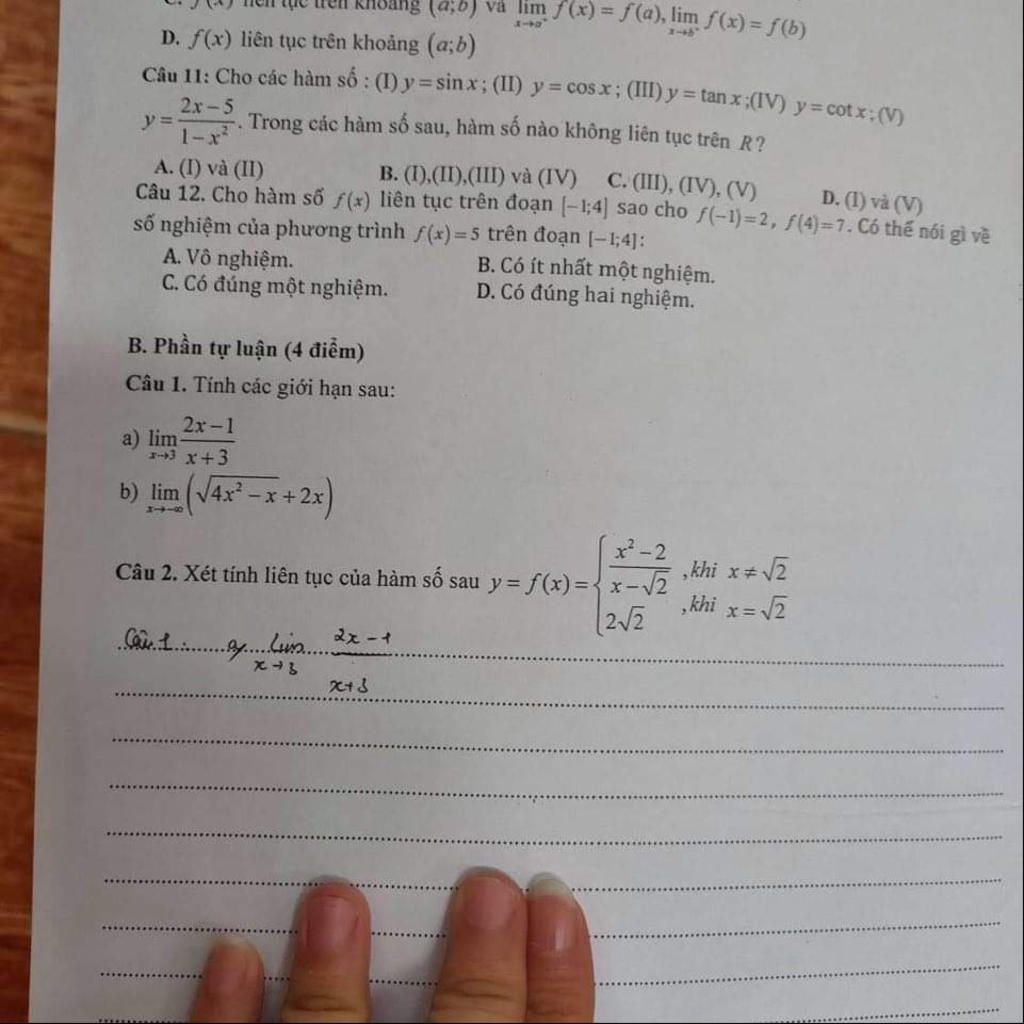 C. f(x) liên tục trên khoảng (a;b) và lim x→a⁺ f(x) = f(a), lim x→b⁻ f(x) = f(b)
D. f(x) liên tục trên khoảng (a;b)
Câu 11: Cho các hàm số : (I) y = sin x ; (II) y = cos x ; (III) y = tan x ;(IV) y = cot x ; (V)
y = (2x − 5)/(1 − x²). Trong các hàm số sau, hàm số nào không liên tục trên R?
A. (I) và (II) B. (I),(II),(III) và (IV) C. (III), (IV), (V) D. (I) và (V)
Câu 12. Cho hàm số f(x) liên tục trên đoạn [−1;4] sao cho f(−1)=2, f(4)=7. Có thể nói gì về
số nghiệm của phương trình f(x)=5 trên đoạn [−1;4]:
A. Vô nghiệm. B. Có ít nhất một nghiệm.
C. Có đúng một nghiệm. D. Có đúng hai nghiệm.
B. Phần tự luận (4 điểm)
Câu 1. Tính các giới hạn sau:
a) lim x→3 (2x − 1)/(x + 3)
b) lim x→−∞ (√(4x² − x) + 2x)
Câu 2. Xét tính liên tục của hàm số sau y = f(x) = { (x² − 2)/(x − √2) ,khi x ≠ √2
2√2 ,khi x = √2
Câu 1: a) lim x→3 (2x − 1)/(x+3)